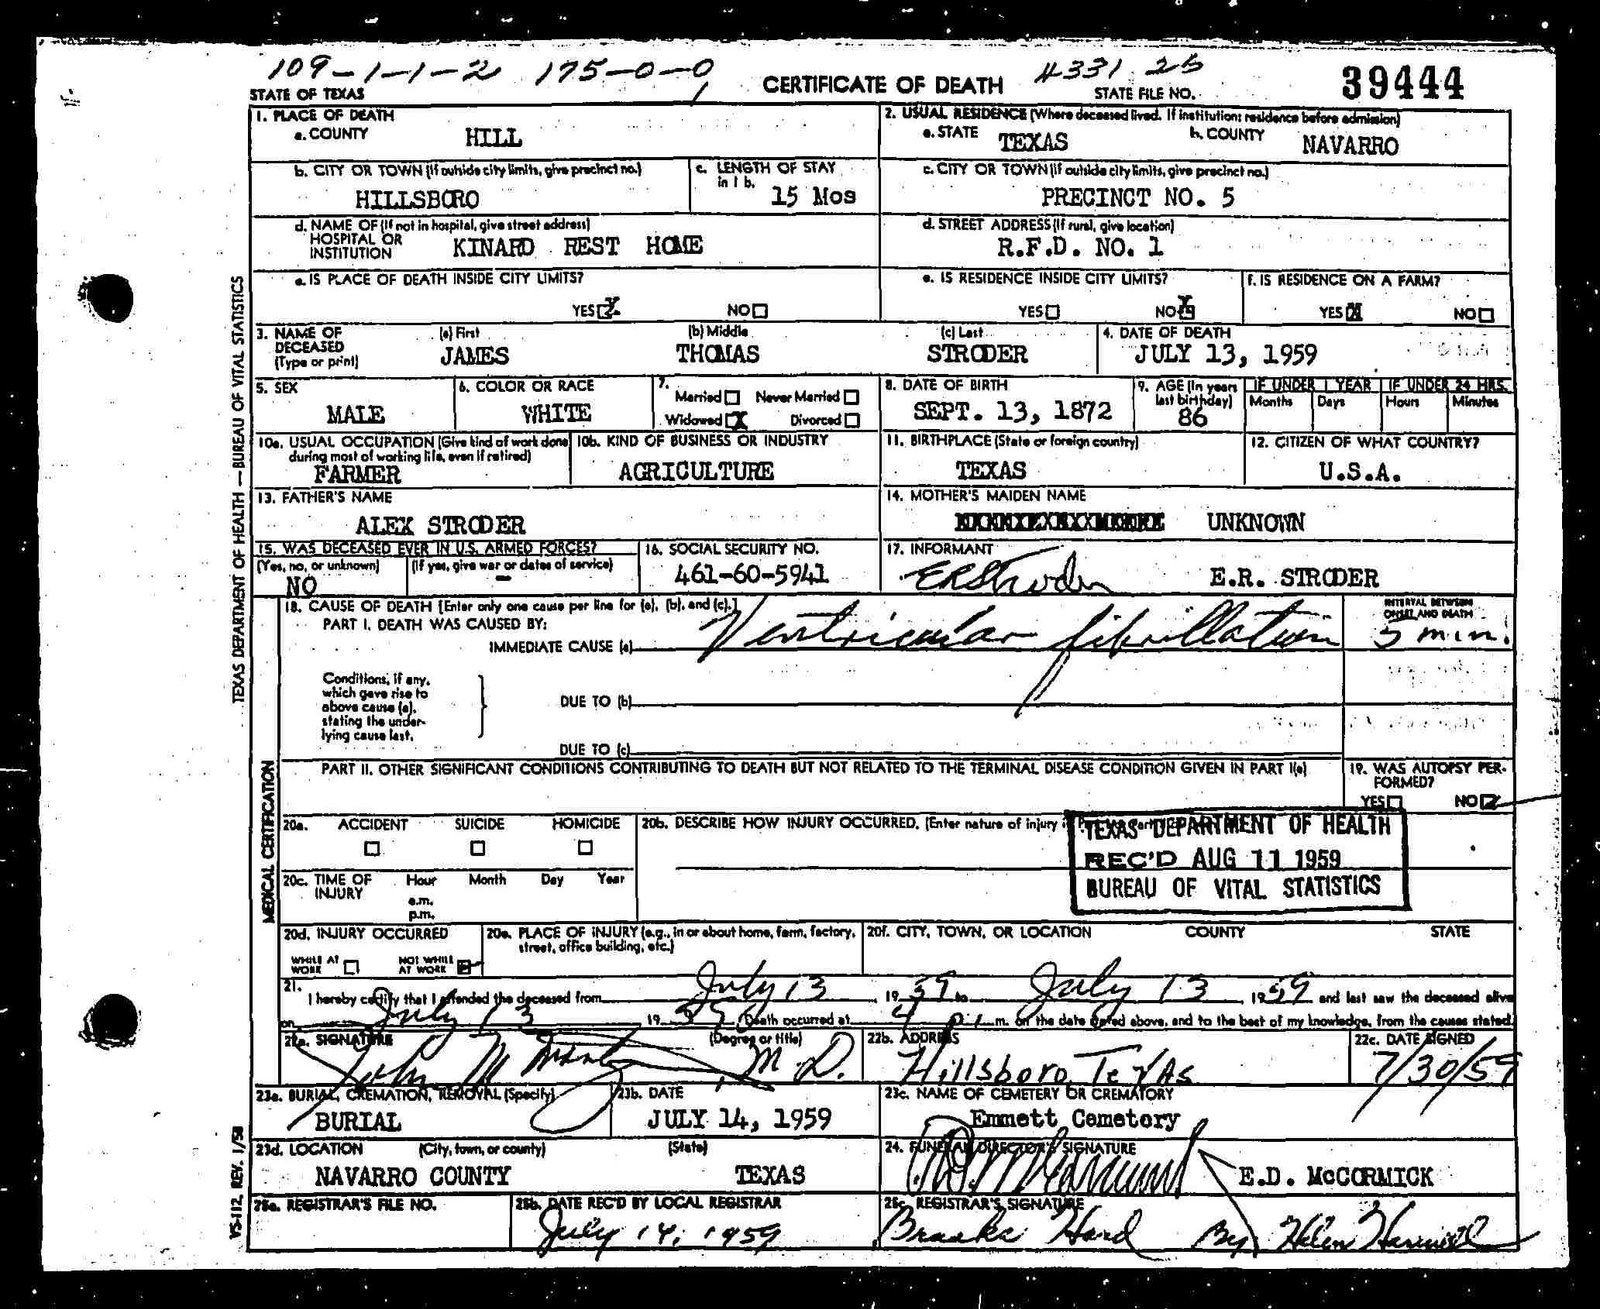 109-1-1-2 175-0-0 CERTIFICATE OF DEATH 4331 25 39444
STATE OF TEXAS STATE FILE NO.
1. PLACE OF DEATH
a. COUNTY HILL
2. USUAL RESIDENCE (Where deceased lived. If institution: residence before admission)
a. STATE TEXAS b. COUNTY NAVARRO
b. CITY OR TOWN (If outside city limits, give precinct no.) HILLSBORO
c. LENGTH OF STAY in 1 b. 15 Mos
c. CITY OR TOWN (If outside city limits, give precinct no.) PRECINCT NO. 5
d. NAME OF (If not in hospital, give street address)
HOSPITAL OR
INSTITUTION KINARD REST HOME
d. STREET ADDRESS (If rural, give location)
R.F.D. NO. 1
e. IS PLACE OF DEATH INSIDE CITY LIMITS?
YES X NO
e. IS RESIDENCE INSIDE CITY LIMITS?
YES NO X
f. IS RESIDENCE ON A FARM?
YES X NO
3. NAME OF DECEASED (Type or print)
(a) First (b) Middle (c) Last
JAMES THOMAS STRODER
4. DATE OF DEATH
JULY 13, 1959
5. SEX
MALE
6. COLOR OR RACE
WHITE
7. Married Never Married
Widowed X Divorced
8. DATE OF BIRTH
SEPT. 13, 1872
9. AGE (In years last birthday)
86
IF UNDER 1 YEAR IF UNDER 24 HRS.
Months Days Hours Minutes
10a. USUAL OCCUPATION (Give kind of work done during most of working life, even if retired)
FARMER
10b. KIND OF BUSINESS OR INDUSTRY
AGRICULTURE
11. BIRTHPLACE (State or foreign country)
TEXAS
12. CITIZEN OF WHAT COUNTRY?
U.S.A.
13. FATHER'S NAME
ALEX STRODER
14. MOTHER'S MAIDEN NAME
UNKNOWN
15. WAS DECEASED EVER IN U.S. ARMED FORCES?
(Yes, no, or unknown) (If yes, give war or dates of service)
NO -
16. SOCIAL SECURITY NO.
461-60-5941
17. INFORMANT
E R Stroder E.R. STRODER
18. CAUSE OF DEATH [Enter only one cause per line for (a), (b), and (c).]
PART I. DEATH WAS CAUSED BY:
IMMEDIATE CAUSE (a) Ventricular fibrillation
INTERVAL BETWEEN ONSET AND DEATH
5 min.
Conditions, if any,
which gave rise to
above cause (a),
stating the under-
lying cause last.
DUE TO (b)
DUE TO (c)
PART II. OTHER SIGNIFICANT CONDITIONS CONTRIBUTING TO DEATH BUT NOT RELATED TO THE TERMINAL DISEASE CONDITION GIVEN IN PART I(a)
19. WAS AUTOPSY PER-
FORMED?
YES NO
20a. ACCIDENT SUICIDE HOMICIDE
20b. DESCRIBE HOW INJURY OCCURRED. (Enter nature of injury
TEXAS DEPARTMENT OF HEALTH
REC'D AUG 11 1959
BUREAU OF VITAL STATISTICS
20c. TIME OF INJURY Hour Month Day Year
a.m.
p.m.
20d. INJURY OCCURRED
WHILE AT WORK NOT WHILE AT WORK
20e. PLACE OF INJURY (e.g., in or about home, farm, factory, street, office building, etc.)
20f. CITY, TOWN, OR LOCATION COUNTY STATE
21. I hereby certify that I attended the deceased from July 13 1959 to July 13, 1959 and last saw the deceased alive
on July 13 1959 Death occurred at 4 p.m. on the date stated above, and to the best of my knowledge, from the causes stated.
22a. SIGNATURE (Degree or title)
John M M.D.
22b. ADDRESS
Hillsboro, Texas
22c. DATE SIGNED
7/30/59
23a. BURIAL, CREMATION, REMOVAL (Specify)
BURIAL
23b. DATE
JULY 14, 1959
23c. NAME OF CEMETERY OR CREMATORY
Emmett Cemetory
23d. LOCATION (City, town, or county) (State)
NAVARRO COUNTY TEXAS
24. FUNERAL DIRECTOR'S SIGNATURE
E.D. McCORMICK
25a. REGISTRAR'S FILE NO.
25b. DATE REC'D BY LOCAL REGISTRAR
July 14, 1959
25c. REGISTRAR'S SIGNATURE
By Helen
TEXAS DEPARTMENT OF HEALTH — BUREAU OF VITAL STATISTICS
MEDICAL CERTIFICATION
VS-112, REV. 1/58